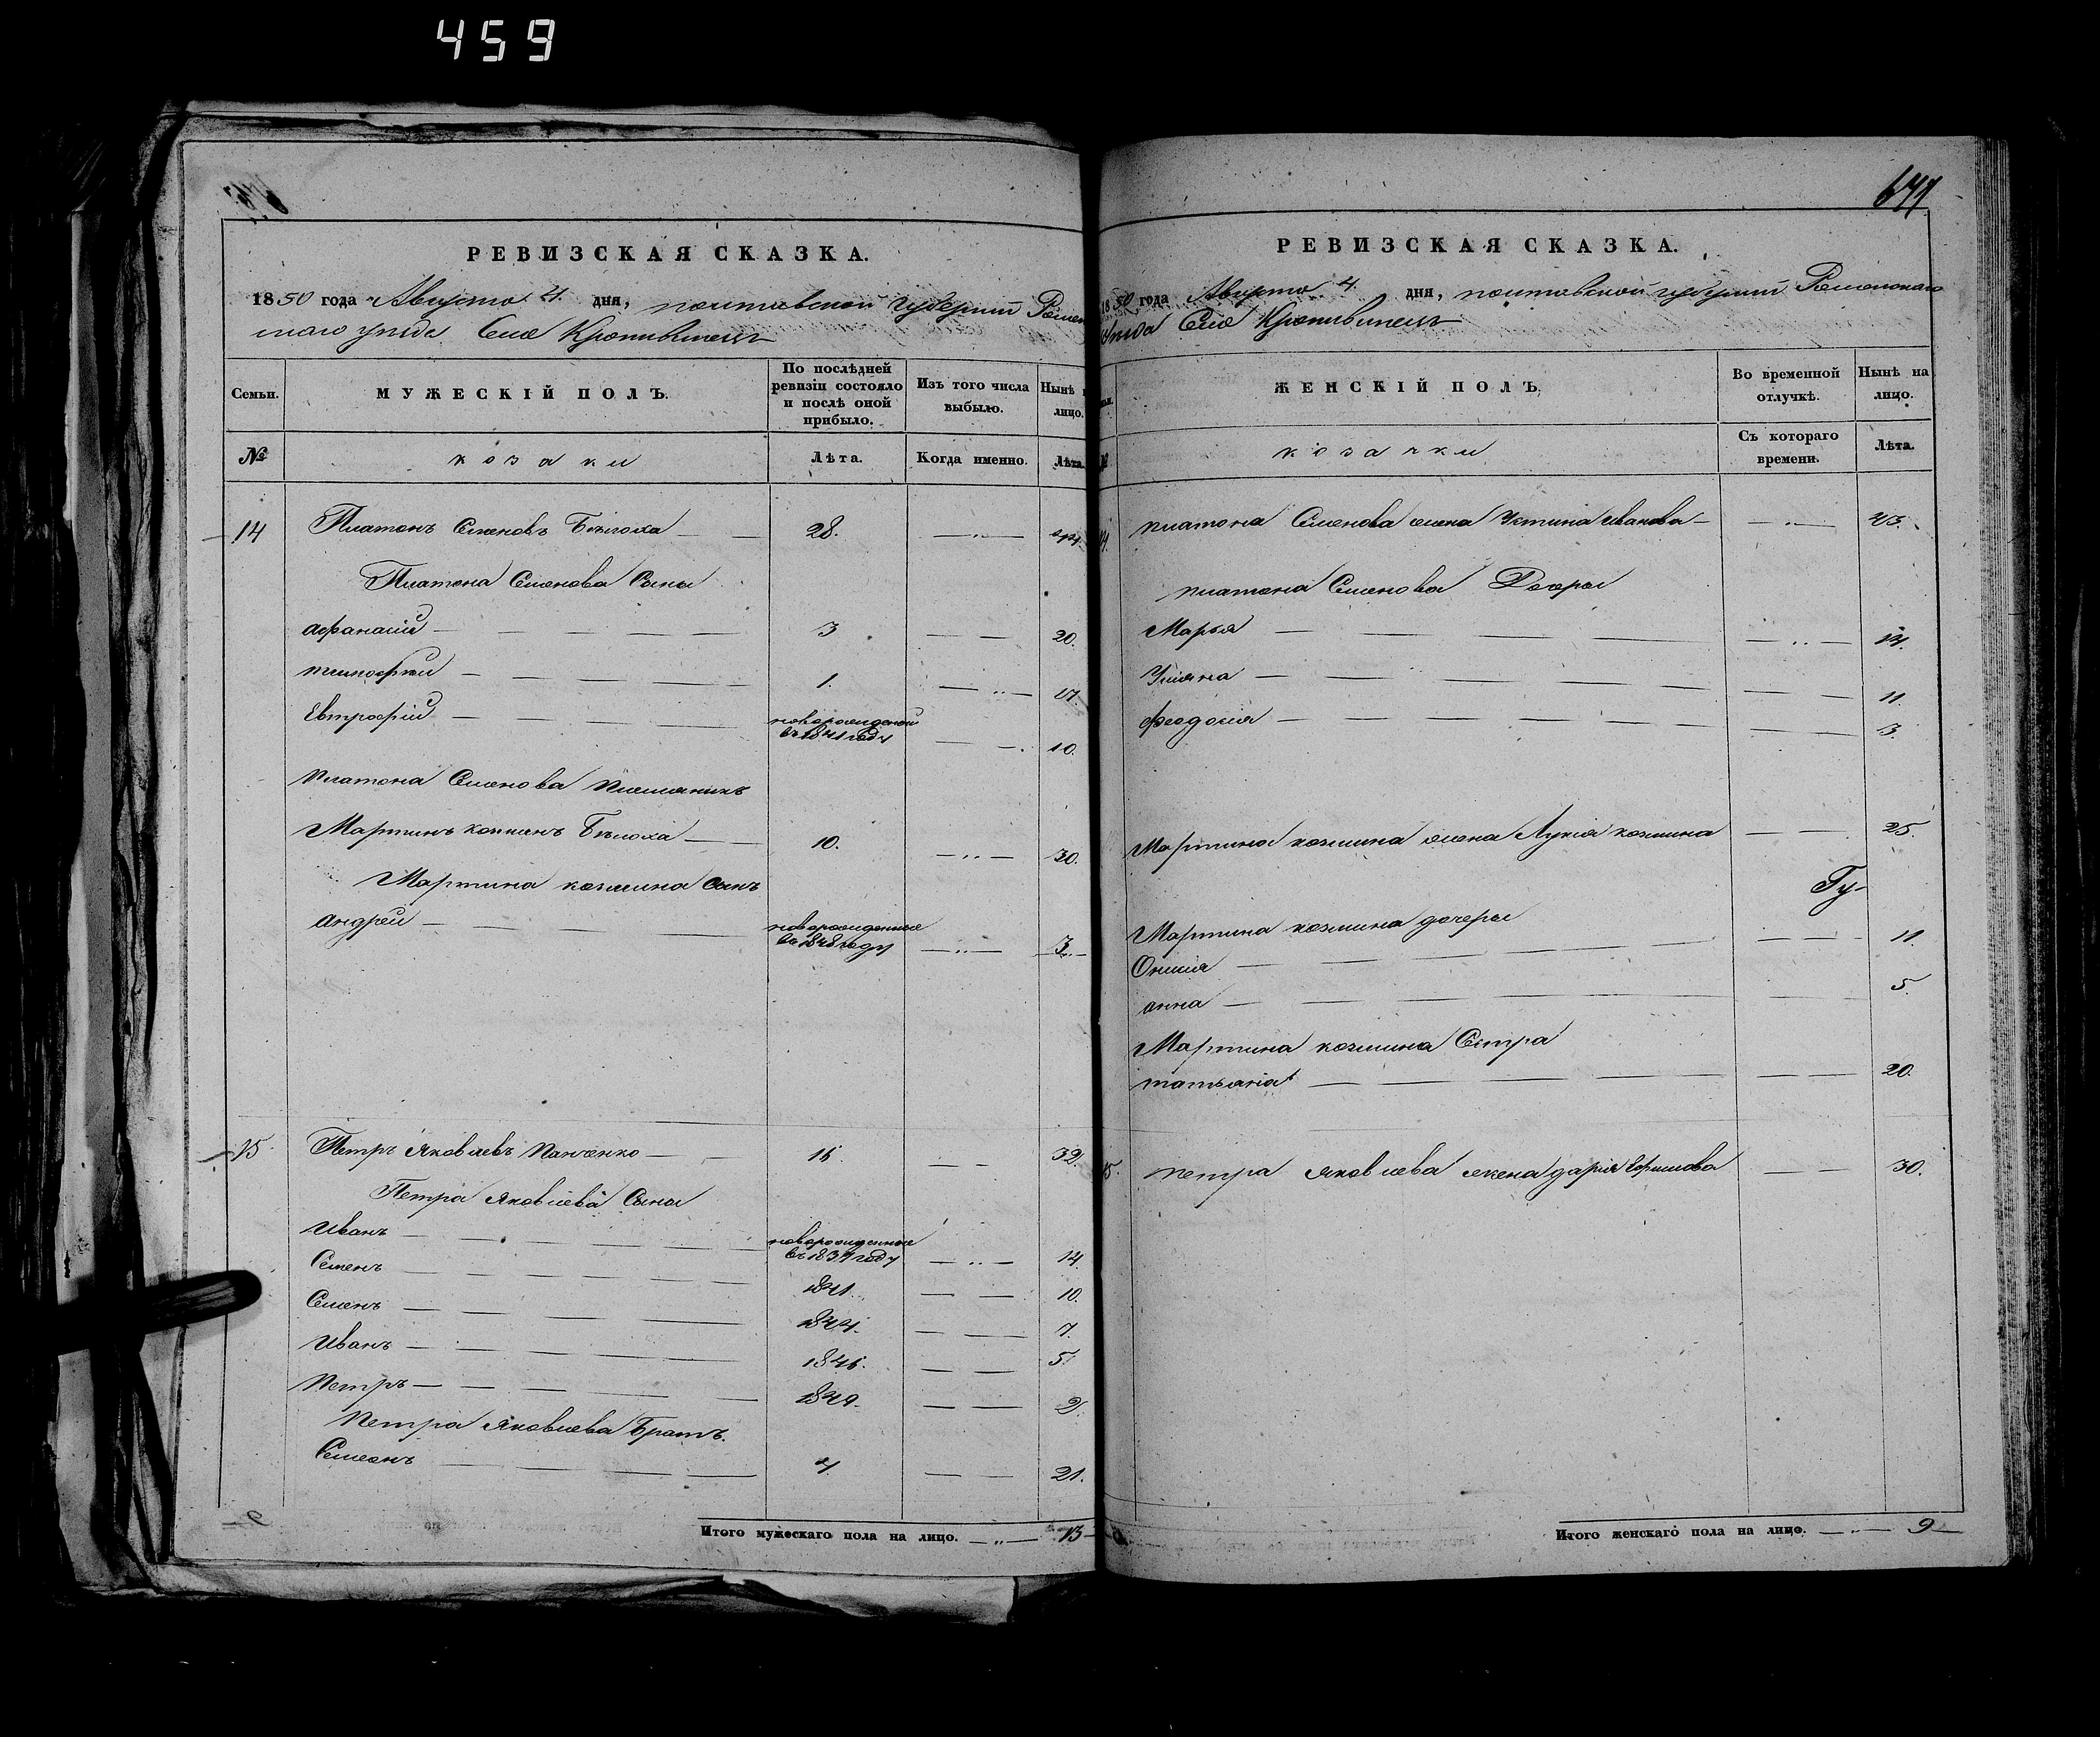 459
РЕВИЗСКАЯ СКАЗКА.
1850 года Августа 4 дня, полтавской губернии Ромен
скаго уезда Село Кропивинецъ
Семьи. МУЖЕСКІЙ ПОЛЪ. По послѣдней ревизіи состояло и послѣ оной прибыло. Изъ того числа выбыло. Нынѣ на лицо.
№ козаки Лѣта. Когда именно. Лѣта.
14 Платонъ Семеновъ Бѣлоха 28.
Платона Семенова Сыны
афанасій 3 20.
тимофей 1. 17.
Евтрофій новорожденой въ 1841 году 10.
Платона Семенова племяникъ
Мартинъ козминъ Бѣлоха 10. 30.
Мартина козмина Сынъ
андрей новорожденные въ 1848 году 3
15 Петръ Яковлевъ Панченко 16 32.
Петра Яковлева Сыны
Иванъ новорожденные въ 1837 году 14.
Семенъ 1841. 10.
Семенъ 1844. 7.
Иванъ 1846. 5
Петръ 1849. 2
Петра Яковлева Братъ.
Семенъ 21.
Итого мужескаго пола на лицо. 13
641
РЕВИЗСКАЯ СКАЗКА.
1850 года Августа 4 дня, полтавской губерніи Роменскаго
Уезда Село Кропивинецъ
ЖЕНСКІЙ ПОЛЪ. Во временной отлучкѣ. Нынѣ на лицо.
№ козачки Съ котораго времени. Лѣта.
14. платона Семенова жена Устина Иванова 43.
платона Семенова Дочеры
Марья 14.
Уляна 11.
феодосія 3.
Мартина козмина жена Лукія козмина 25
Гу-
Мартина козмина дочеры
11
анна 5.
Мартина козмина Сестра
татьяна 20.
15. петра яковлева жена дарія Ефимова 30.
Итого женскаго пола на лицо. 9